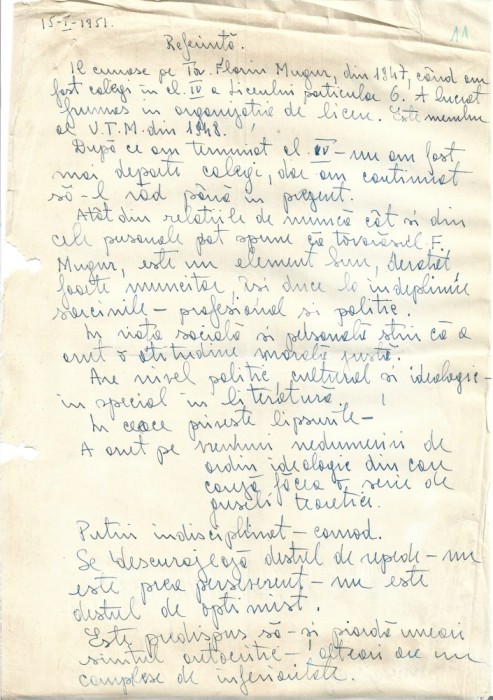 15-I-1951.
11
Referință.
Il cunosc pe Tov. Florin Mugur, din 1947, când am
fost colegi în cl. IV a Liceului particular 6. A lucrat
frumos în organizația de liceu. Este membru
al U.T.M. din 1948.
După ce am terminat cl. IV - nu am fost
mai departe colegi, dar am continuat
să-l văd până în prezent.
Atât din relațiile de muncă cât și din
cele personale pot spune că tovarășul F.
Mugur, este un element bun, devotat,
foarte muncitor, își duce la îndeplinire
sarcinile - profesional și politic.
In viața socială și personală știu că a
avut o atitudine morală justă.
Are nivel politic, cultural și ideologic -
in special in literatură.
In ceace privește lipsurile -
A avut pe vremuri nedumeriri de
ordin ideologic din care
cauză făcea o serie de
greșeli teoretice.
Putin indisciplinat - comod.
Se descurajează destul de repede - nu
este prea perseverent - nu este
destul de optimist.
Este predispus să-și piardă uneori
simțul autocritic - alteori are un
complexe de inferioritate.